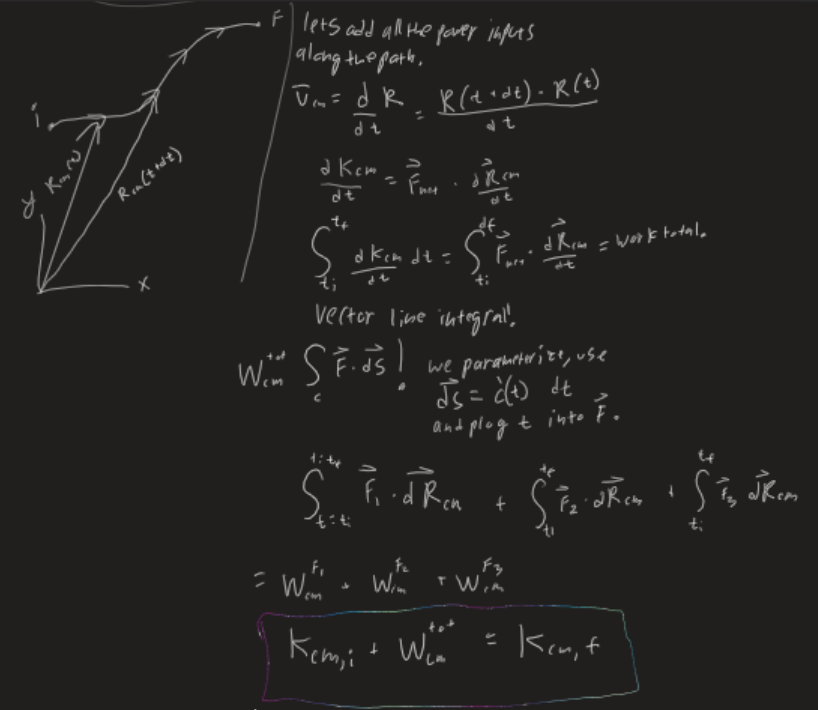 F
i
R_cm(t)
R_cm(t+dt)
y
x
lets add all the power inputs
along the path.
v̄_cm = d/dt R = R(t+dt) - R(t) / dt
dK_cm/dt = F⃗_net · dR⃗_cm/dt
∫_{t_i}^{t_f} dK_cm/dt dt = ∫_{t_i}^{df} F⃗_net · dR⃗_cm/dt = work total.
vector line integral!
W_cm^tot ∫_c F⃗ · ds⃗ ! we parameterize, use
ds⃗ = c'(t) dt
and plug t into F⃗.
∫_{t=t_i}^{t=t_f} F⃗_1 · dR⃗_cm + ∫_{t_i}^{t_f} F⃗_2 · dR⃗_cm + ∫_{t_i}^{t_f} F⃗_3 dR⃗_cm
= W_cm^{F_1} + W_cm^{F_2} + W_cm^{F_3}
K_cm,i + W_cm^tot = K_cm,f